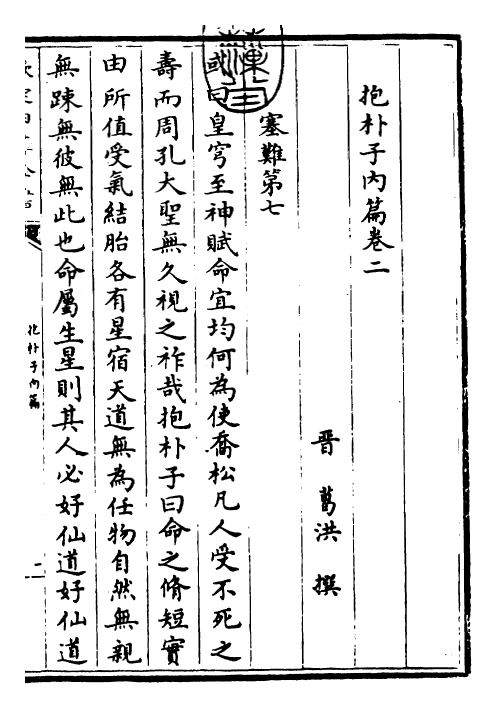 抱朴子內篇卷二
晉 葛洪 撰
塞難第七
或曰皇穹至神賦命宜均何為使喬松凡人受不死之
壽而周孔大聖無久視之祚哉抱朴子曰命之脩短實
由所值受氣結胎各有星宿天道無為任物自然無親
無踈無彼無此也命屬生星則其人必好仙道好仙道
抱朴子內篇